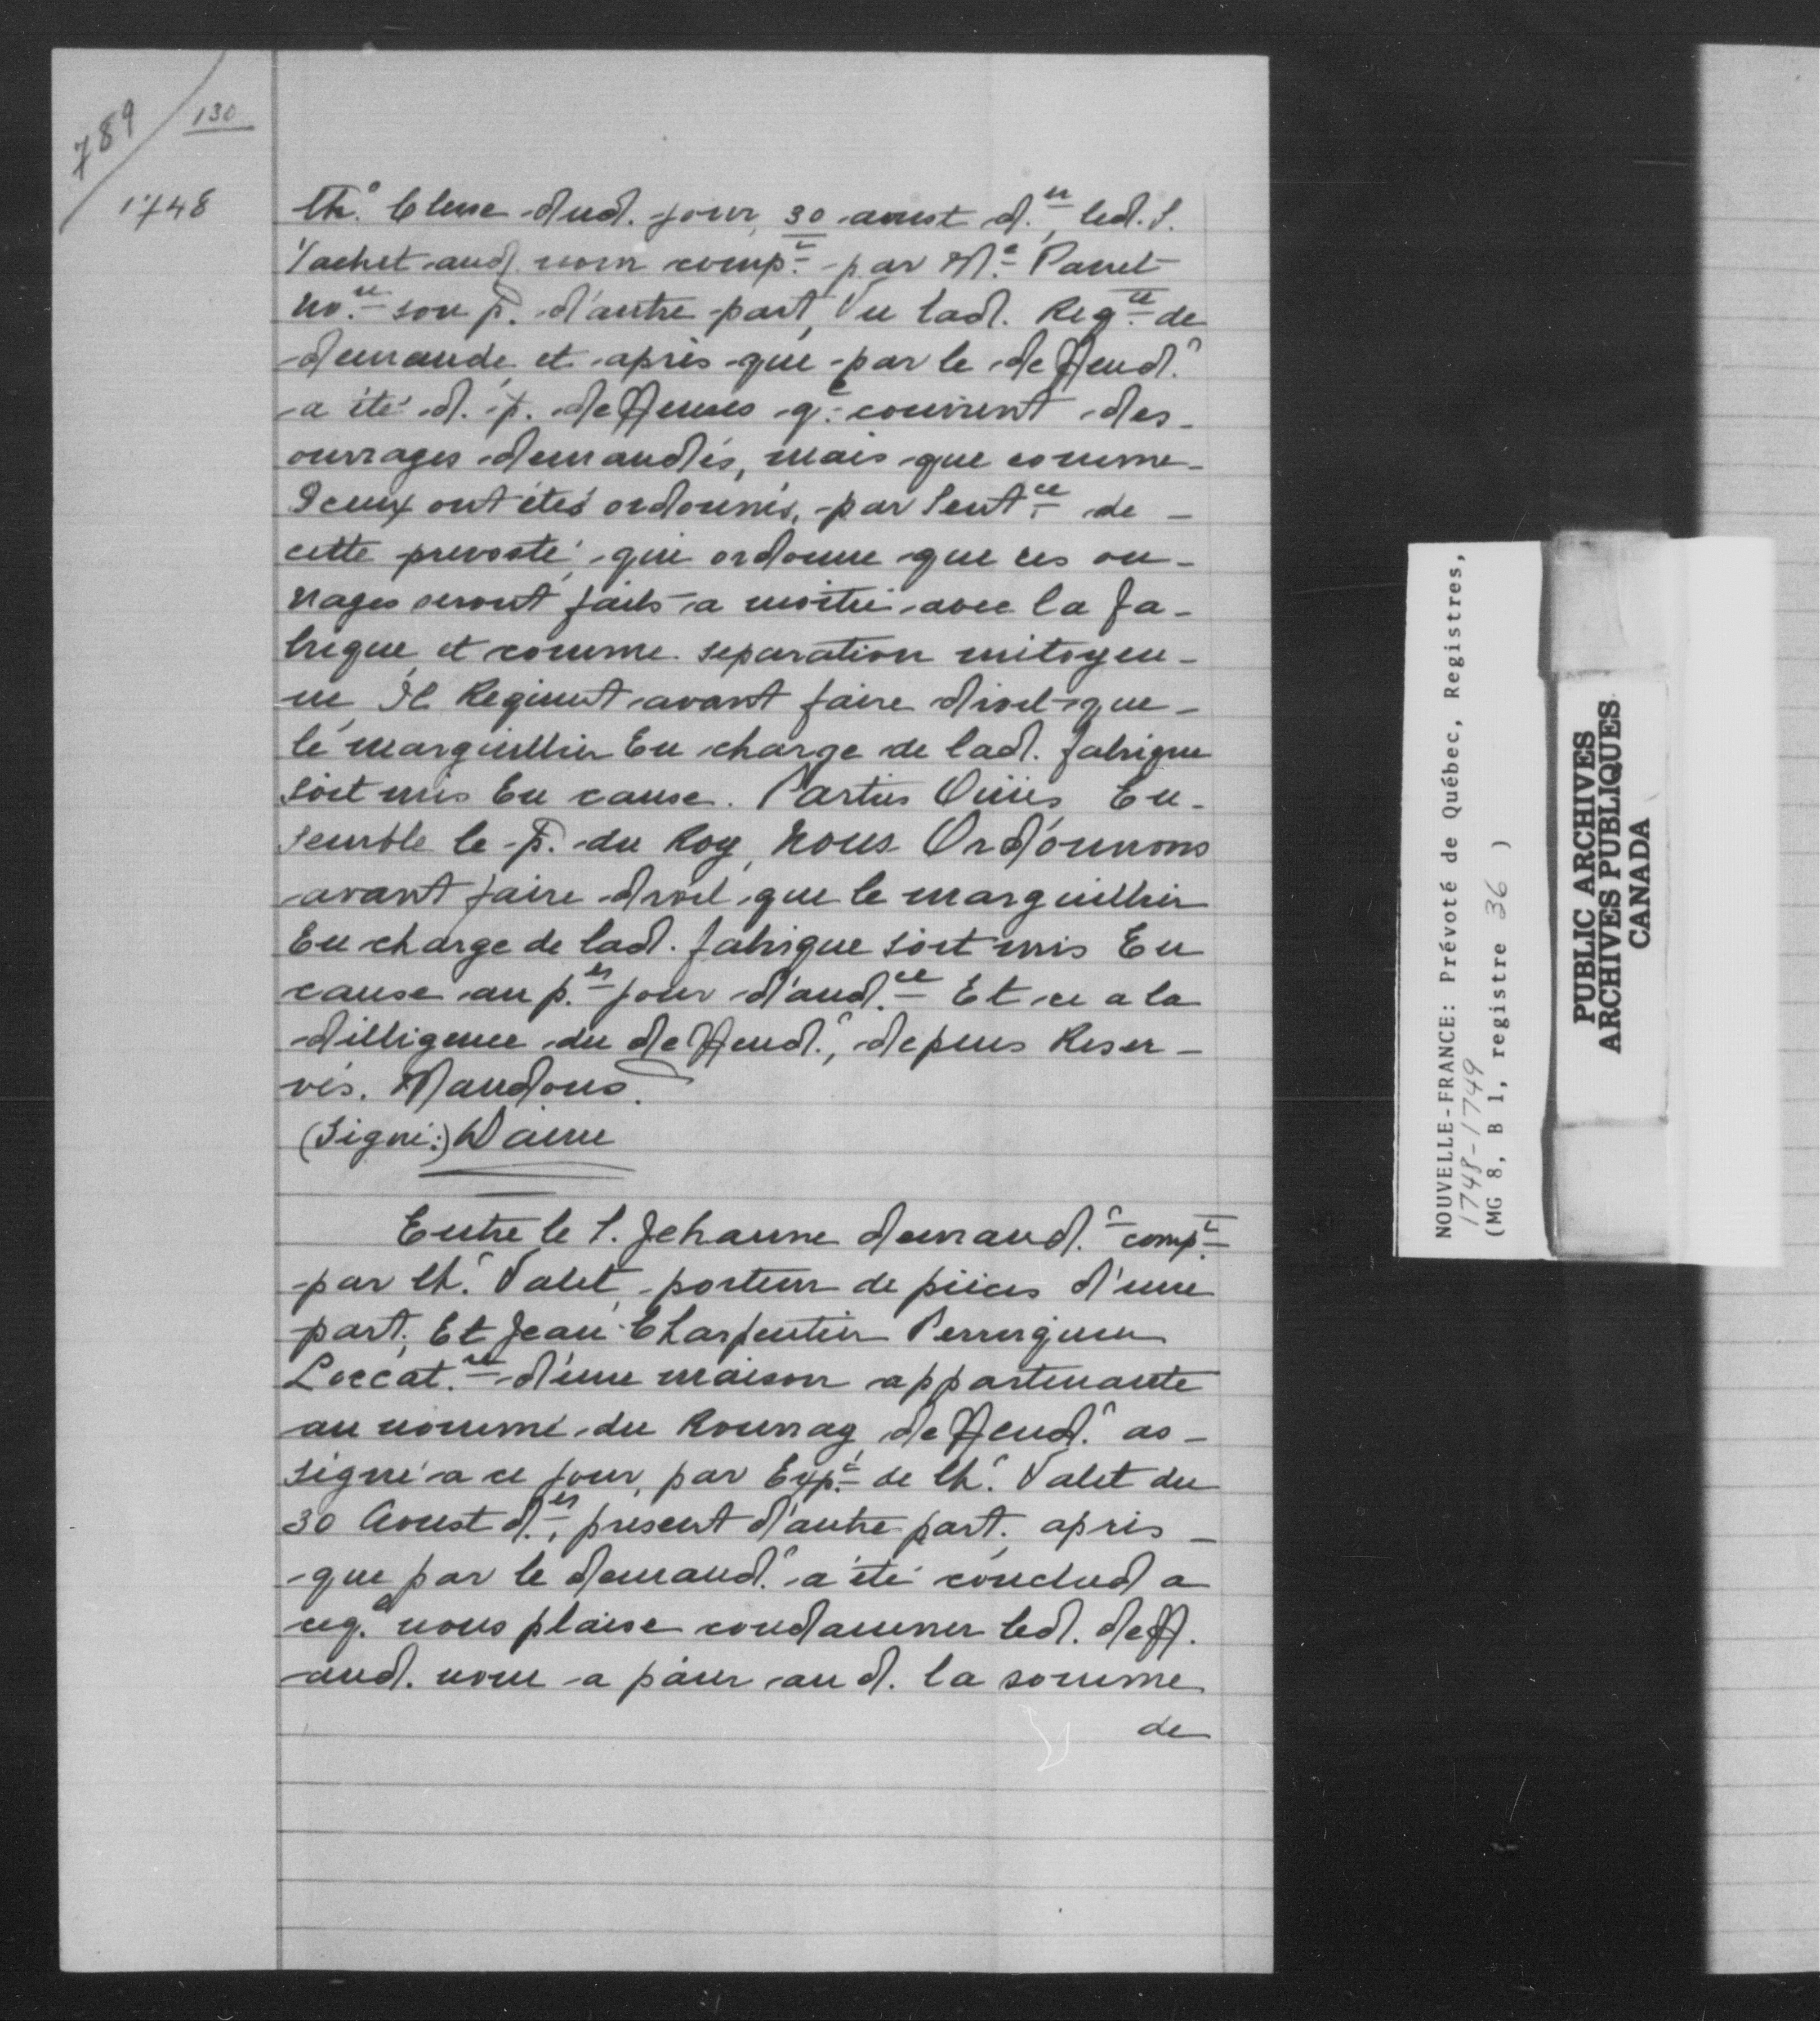 789
130
1748
th.º Clesse dud. jour, 30 aoust d.er, led. S.
Vachet aud. nom comp.t par M.e Panet
no.re son p. d'autre part, Vu lad. Req.te de
demande et après que par le deffend.r
a été d. p. deffenses q.e couvrent des
ouvrages demandés, mais que comme
Iceux ont étés ordonnés, par Sent.ce de
cette prevosté, qui ordonne que ces ou-
vrages seront faits a moitié avec la fa-
brique et comme separation mitoyen-
ne, Il Requiert avant faire droit que
le marguillier En charge de lad. fabrique
soit mis En cause. Parties Ouïes En-
semble le p. du Roy, Nous Ordonnons
avant faire droit que le marguillier
En charge de lad. fabrique soit mis En
cause au p.er jour d'aud.ce Et ce a la
dilligence du deffend.r, depens Reser-
vés. Mandons.
(Signé:) Daine
Entre le S. Jehanne demand.r comp.t
par th.r Valet, porteur de pièces d'une
part; Et Jean Charpentier Perruquier
Loccat.re d'une maison appartenante
au nommé du Rouvray, deffend.r as-
signé a ce jour, par Exp.t de th.r Valet du
30 Aoust d.er, présent d'autre part. après
que par le demand.r a été conclud a
ceq.e nous plaise condamner led. deff.
aud. nom a païer au d. la somme
de
NOUVELLE-FRANCE: Prévoté de Québec, Registres,
1748-1749
(MG 8, B 1, registre 36 )
PUBLIC ARCHIVES
ARCHIVES PUBLIQUES
CANADA